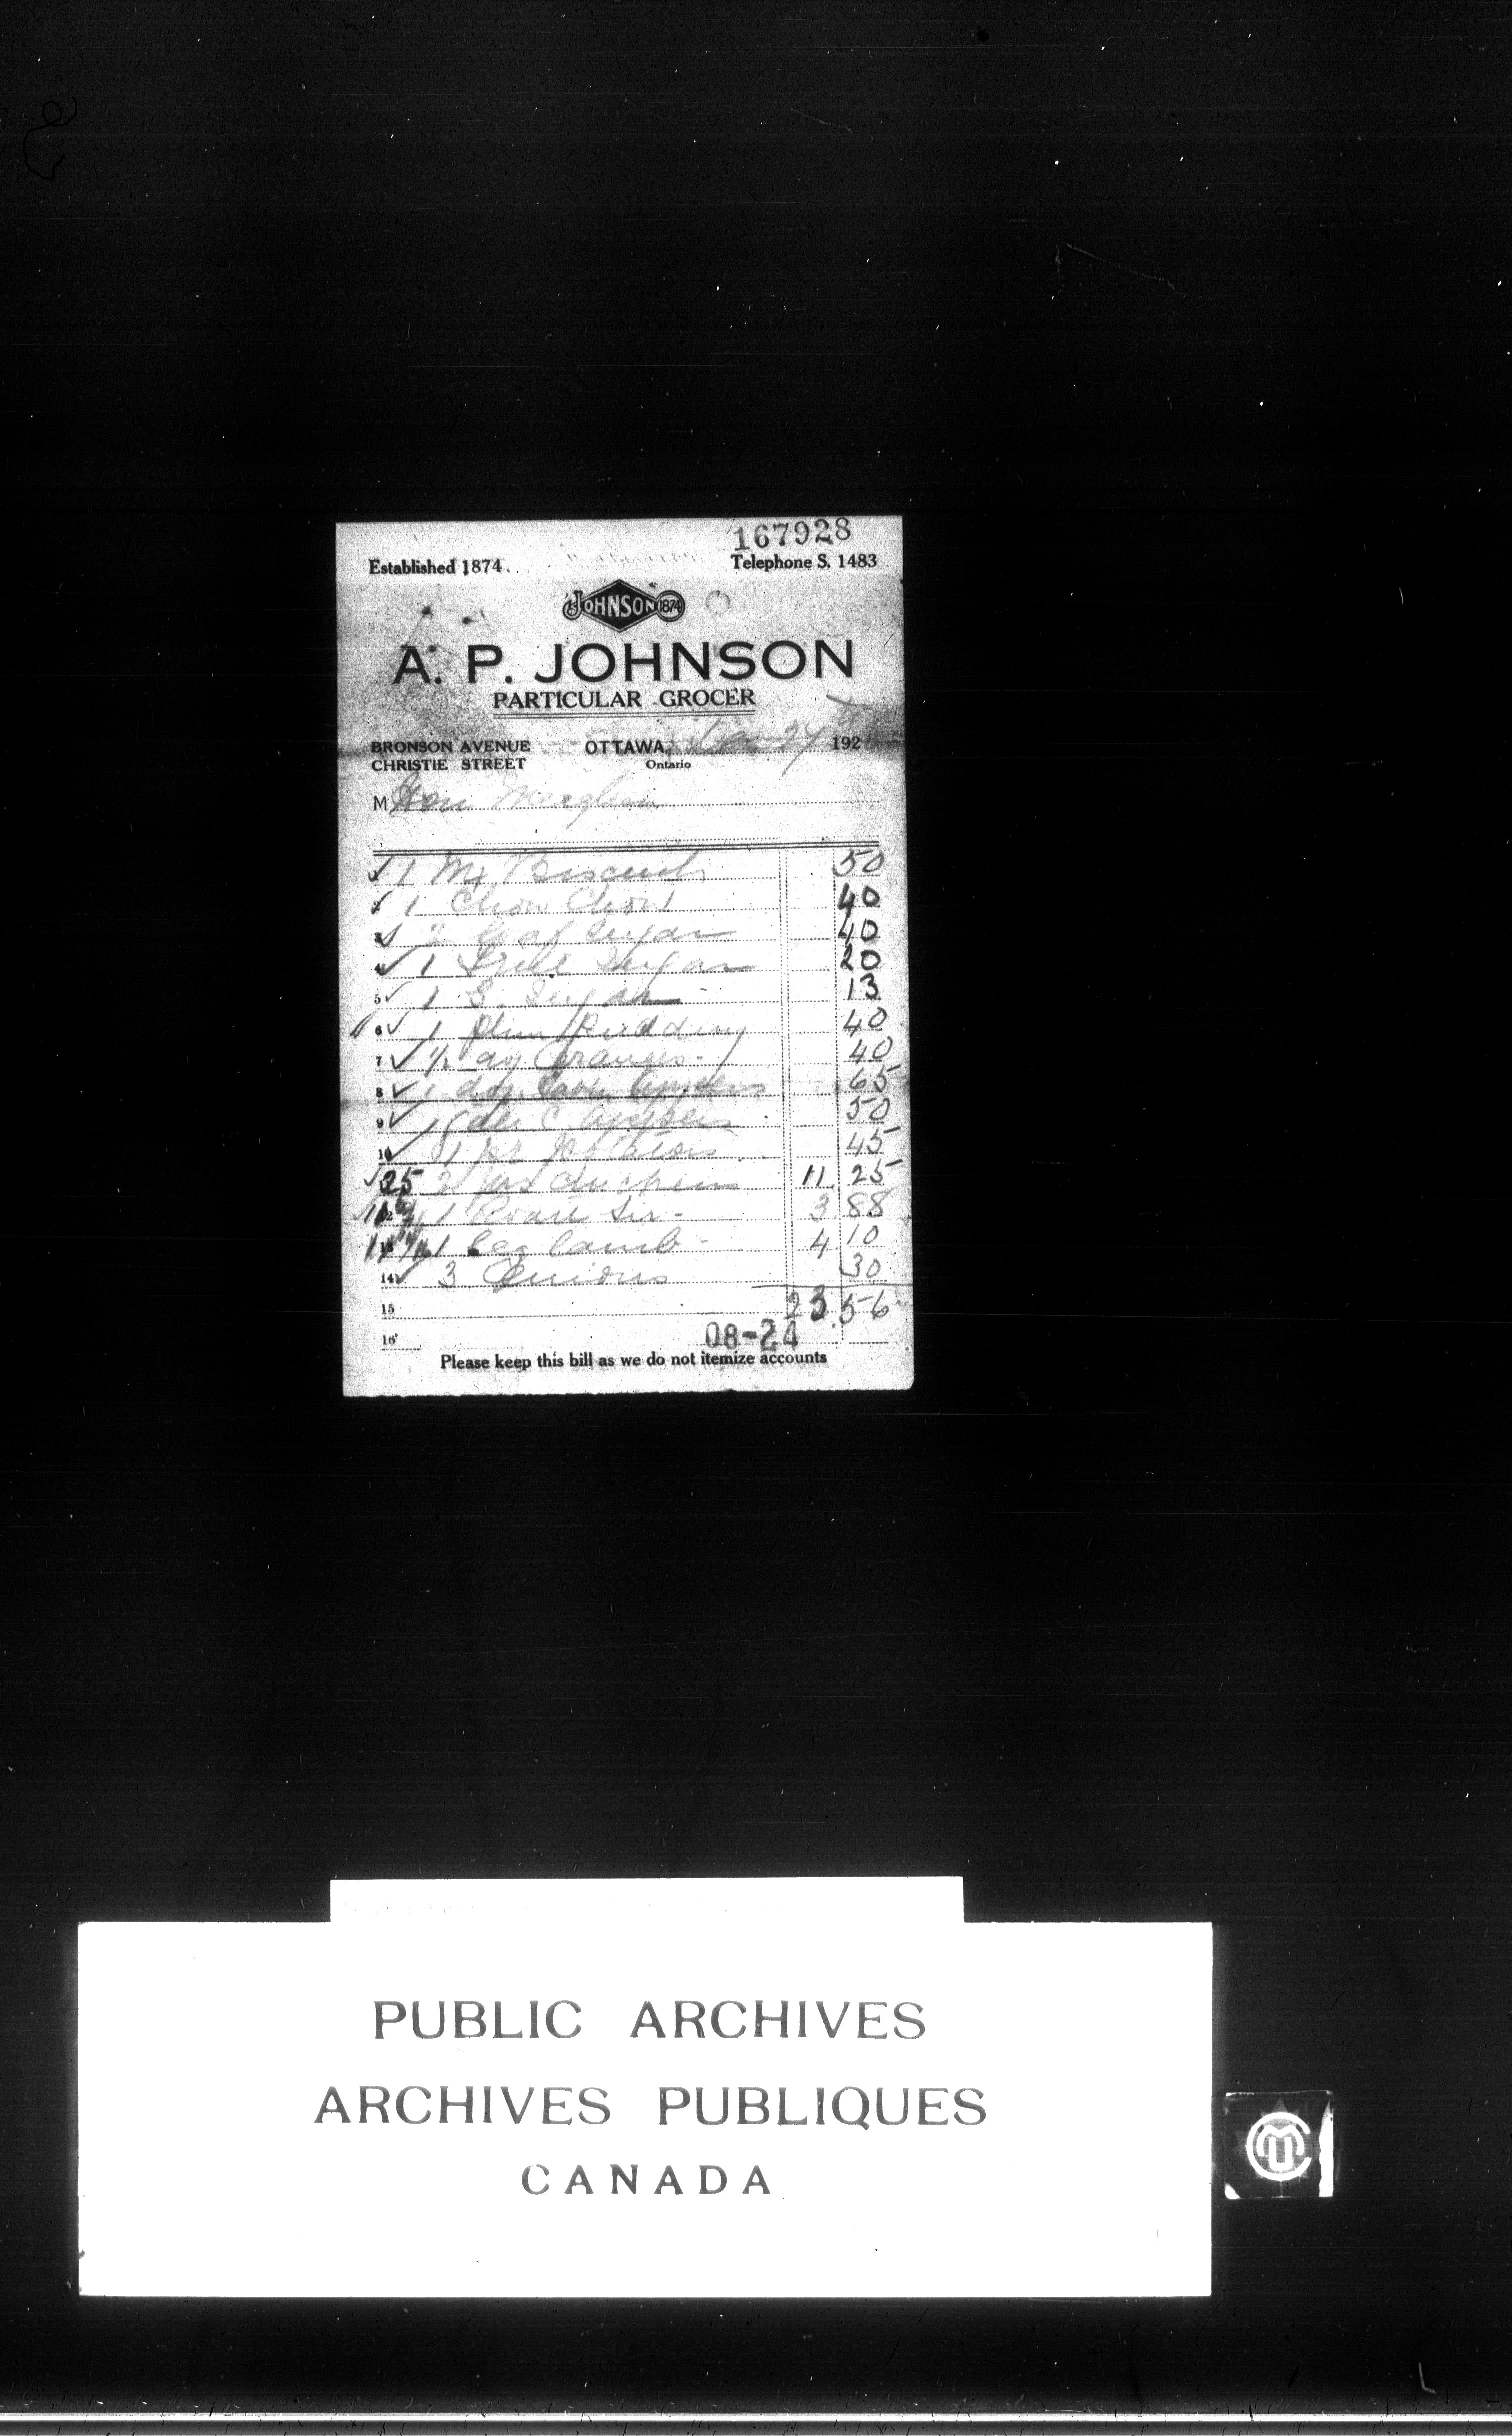 167928
Established 1874. Telephone S. 1483
JOHNSON 1874
A. P. JOHNSON
PARTICULAR GROCER
BRONSON AVENUE OTTAWA, 192
CHRISTIE STREET Ontario
M Hon Meighen
1 Mx Biscuits 50
1 Chow Chow 40
3 2 Loaf Sugar 40
4 1 Fruit Sugar 20
5 1 Sugar 13
6 1 Plum Pudding 40
7 1/2 doz Oranges - 40
8 1 doz 65
9 1 50
10 1 45
25 2 11.25
12 1 Roast 3 88
13 1 Leg Lamb - 4 10
14 3 Onions 30
15 23.56
16 08-24
Please keep this bill as we do not itemize accounts
PUBLIC ARCHIVES
ARCHIVES PUBLIQUES
CANADA